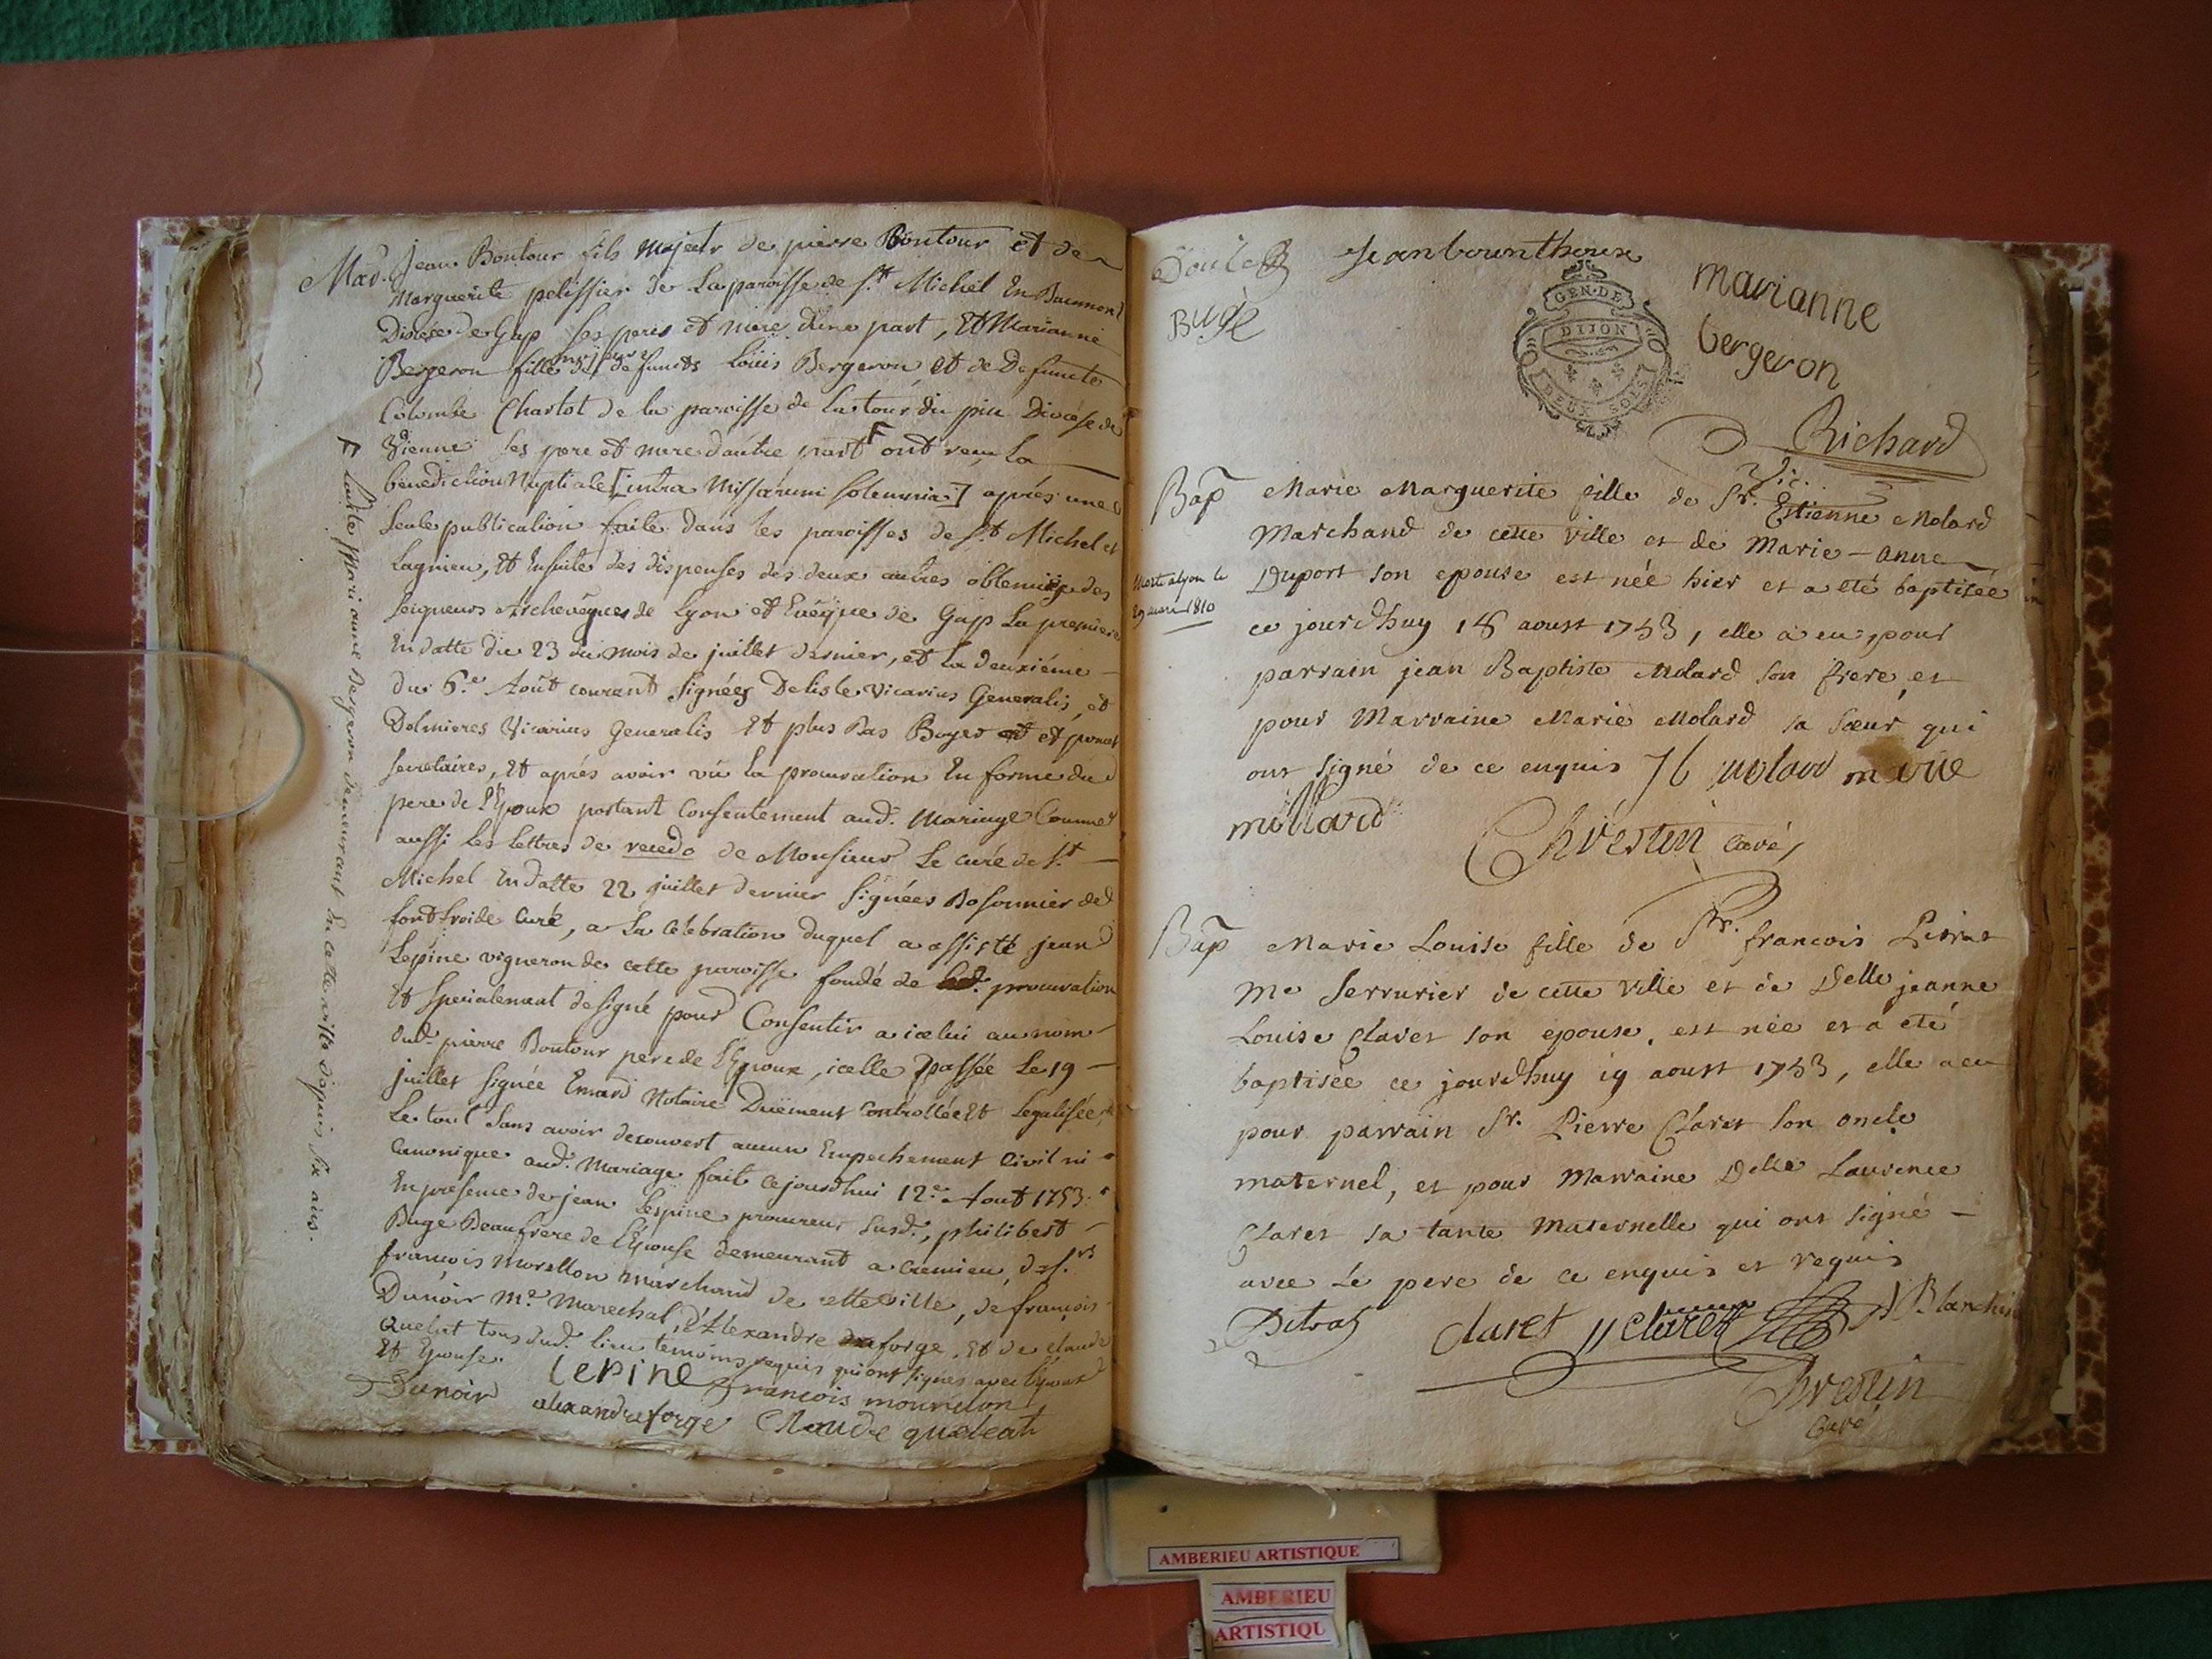 Mar. Jean Boutour fils majeur de pierre Boutour et de
Marguerite pelissier de La paroisse de St. Michel En Baumont
Diocése de Gap ses pere et mere d'une part, Et Marianne
Bergeron fille majeure de defunts Loüis Bergeron et de Defuncte
Colombe Chartot de la paroisse de La tour du pin Diocése de
Vienne ses pere et mere d'autre part F ont reçu la
benediction Nuptiale [intra Missarum solemnia] aprés une
seule publication faite dans les paroisses de St. Michel et
Lagnieu, Et Ensuite des dispenses des deux autres obtenües des
seigneurs Archevéques de Lyon et Evéque de Gap La premiere
En datte du 23 du mois de juillet dernier, et la deuxiéme
du 6.e Aoüt courant signées Delisle Vicarius Generalis, et
Dolmieres Vicarius Generalis Et plus Bas Boyer et poncet
secretaires, Et aprés avoir vü la procuration En forme du
pere de l'Epoux portant Consentement aud. Mariage Comme
aussi les Lettres de recedo de Monsieur Le curé de St.
Michel En datte 22 juillet dernier signées Bosonnier de
fontfroide Curé, a La Célébration duquel a assisté jean
Lepine vigneron de cette paroisse fondé de procuration
Et specialement designé pour Consentir a icelui au nom
dud. pierre Boutour pere de l'Epoux, icelle passée Le 19
juillet signée Emard Notaire Düement Controllée Et Legalisée,
Le tout Sans avoir decouvert aucun Empechement Civil ni
Canonique aud. Mariage fait cejourdhui 12.e Aout 1753.
En presence de jean Lespine procureur susd., philibert
Buge Beaufrere de l'Epouse demeurant a cremieu, de s.rs
françois Morellon marchand de cette ville, de françois
Dunoir M.e Marechal, d'Alexandre forge, Et de claude
quelut tous dud. lieu temoins requis qui ont signés avec l'Epoux
Et Epouse.
lepine françois mourellon
Dunoir alexandre forge Claude
F Ladite Marianne Bergeron demeurant En cette ville depuis six ans.
Jean bounthoux
Bugé
GEN. DE
DIJON
DEUX SOLS
marianne
bergeron
Richard
Bap Marie Marguerite fille de Sr. Etienne Molard
Marchand de cette ville et de Marie-Anne
Duport son epouse est née hier et a eté baptisée
Mort a lyon le
29 mars 1810
ce jourdhuy 18 aoust 1753, elle a eu pour
parrain jean Baptiste Molard son frere, et
pour Marraine Marie Molard sa sœur qui
ont signé de ce enquis J b molard marie
mollard
Chrestin curé,
Bap Marie Louise fille de Sr. francois
Me Serrurier de cette Ville et de Delle jeanne
Louise Claret son epouse, est née et a eté
baptisée ce jourdhuy 19 aoust 1753, elle a eu
pour parrain Sr. Pierre Claret son oncle
maternel, et pour Marraine Delle Laurence
Claret sa tante Maternelle qui ont signé
avec Le pere de ce enquis et requis
claret claret Blanchin
Chrestin
Curé
AMBERIEU ARTISTIQUE
AMBERIEU
ARTISTIQU